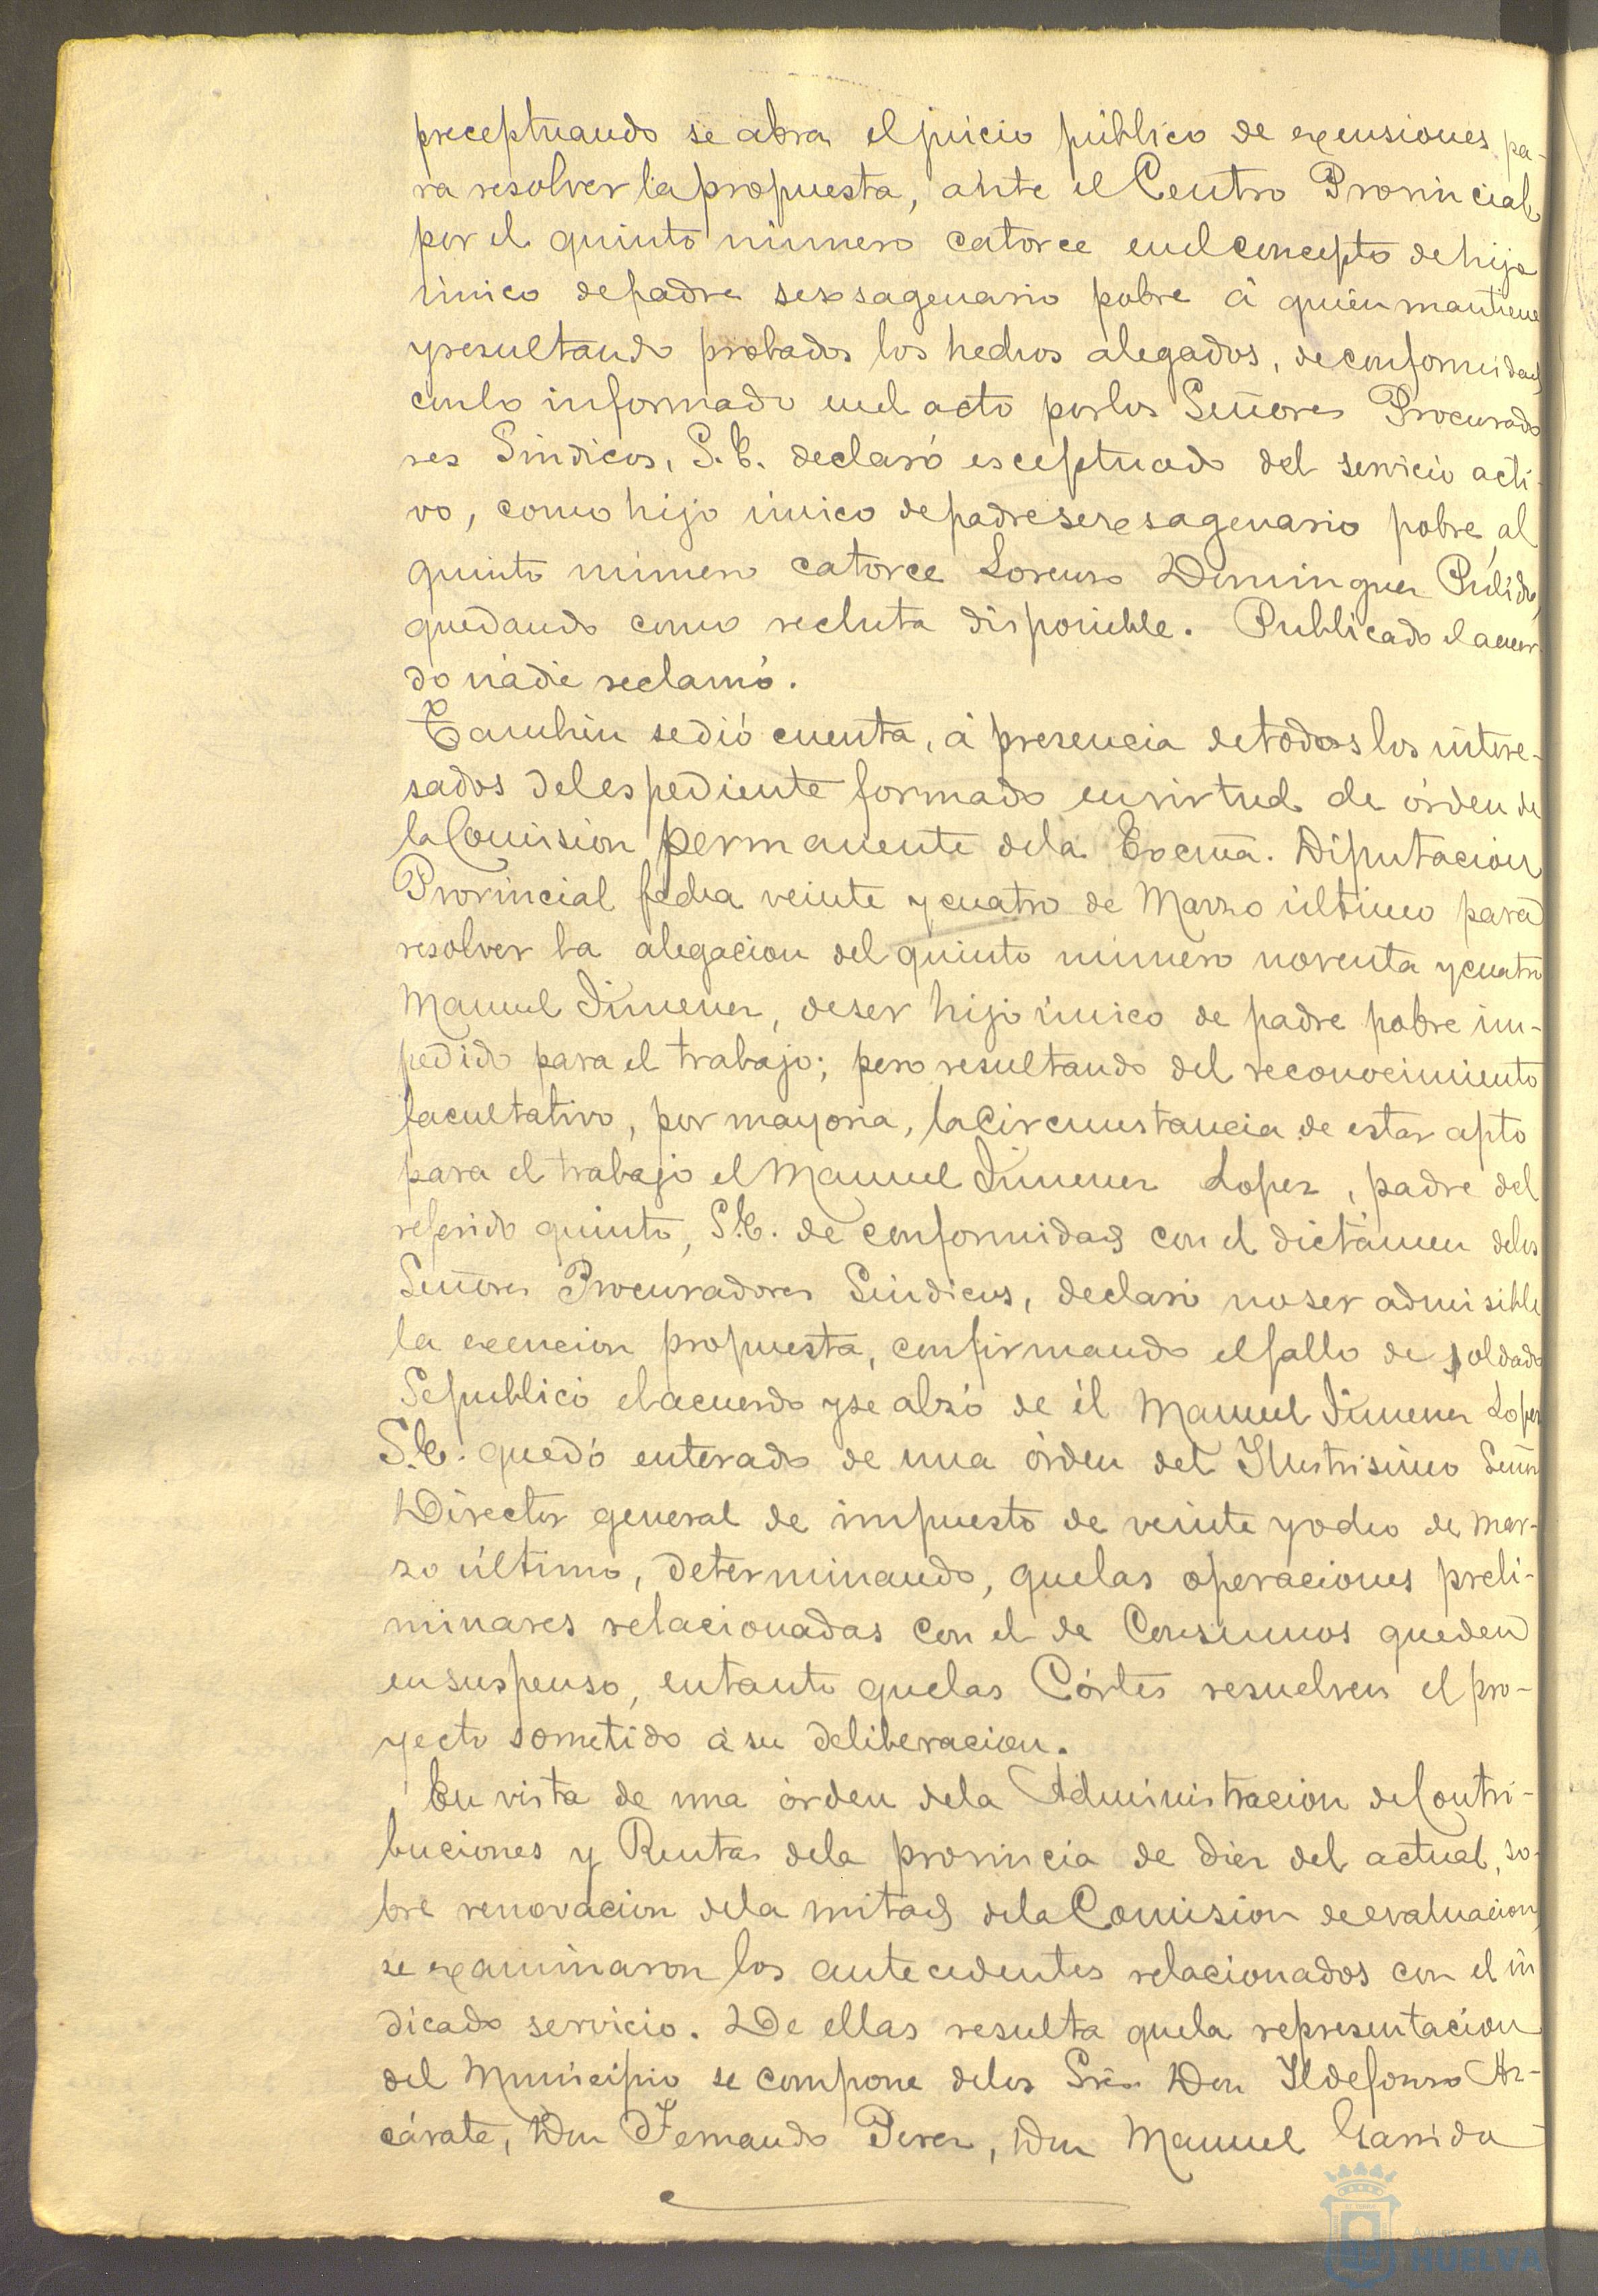 preceptuando se abra el juicio público de exensiones pa-
ra resolver la propuesta, ante el Centro Provincial
por el quinto número catorce en el concepto de hijo
único de padre sexsagenario pobre á quién mantiene
y resultando probados los hechos alegados, de conformidad
con lo informado en el acto por los Señores Procurado
res Síndicos, S.E. declaró esceptuado del servicio acti-
vo, como hijo único de padre sexsagenario pobre, al
quinto número catorce Lorenzo Dominguez Pulido,
quedando como recluta disponible. Publicado el acuer
do nádie reclamó.
Tambien se dió cuenta, á presencia de todos los intere-
sados del espediente formado en virtud de órden de
la Comision permanente de la Excma. Diputacion
Provincial fecha veinte y cuatro de Marzo último para
resolver la alegacion del quinto número noventa y cuatro
Manuel Jimenez, de ser hijo único de padre pobre im-
pedido para el trabajo; pero resultando del reconocimiento
facultativo, por mayoria, la circunstancia de estar apto
para el trabajo el Manuel Jimenez Lopez, padre del
referido quinto, S.E. de conformidad con el dictámen de los
Señores Procuradores Síndicos, declaró no ser admisible
la exencion propuesta, confirmando el fallo de soldado
Se publicó el acuerdo y se alzó de él Manuel Jimenez Lopez
S.E. quedó enterado de una órden del Ilustrisimo Señor
Director general de impuesto de veinte y ocho de mar-
zo último, determinando, que las operaciones preli-
minares relacionadas con el de Consumos queden
en suspenso, en tanto que las Córtes resuelven el pro-
yecto sometido á su deliberacion.
En vista de una órden de la Administracion de Contri-
buciones y Rentas de la provincia de diez del actual, so-
bre renovacion de la mitad de la Comision de evaluacion,
se examinaron los antecedentes relacionados con el in
dicado servicio. De ellas resulta que la representacion
del Municipio se compone de los Sres. Don Ildefonso Az-
cárate, Don Fernando Perez, Don Manuel Garrido
HUELVA